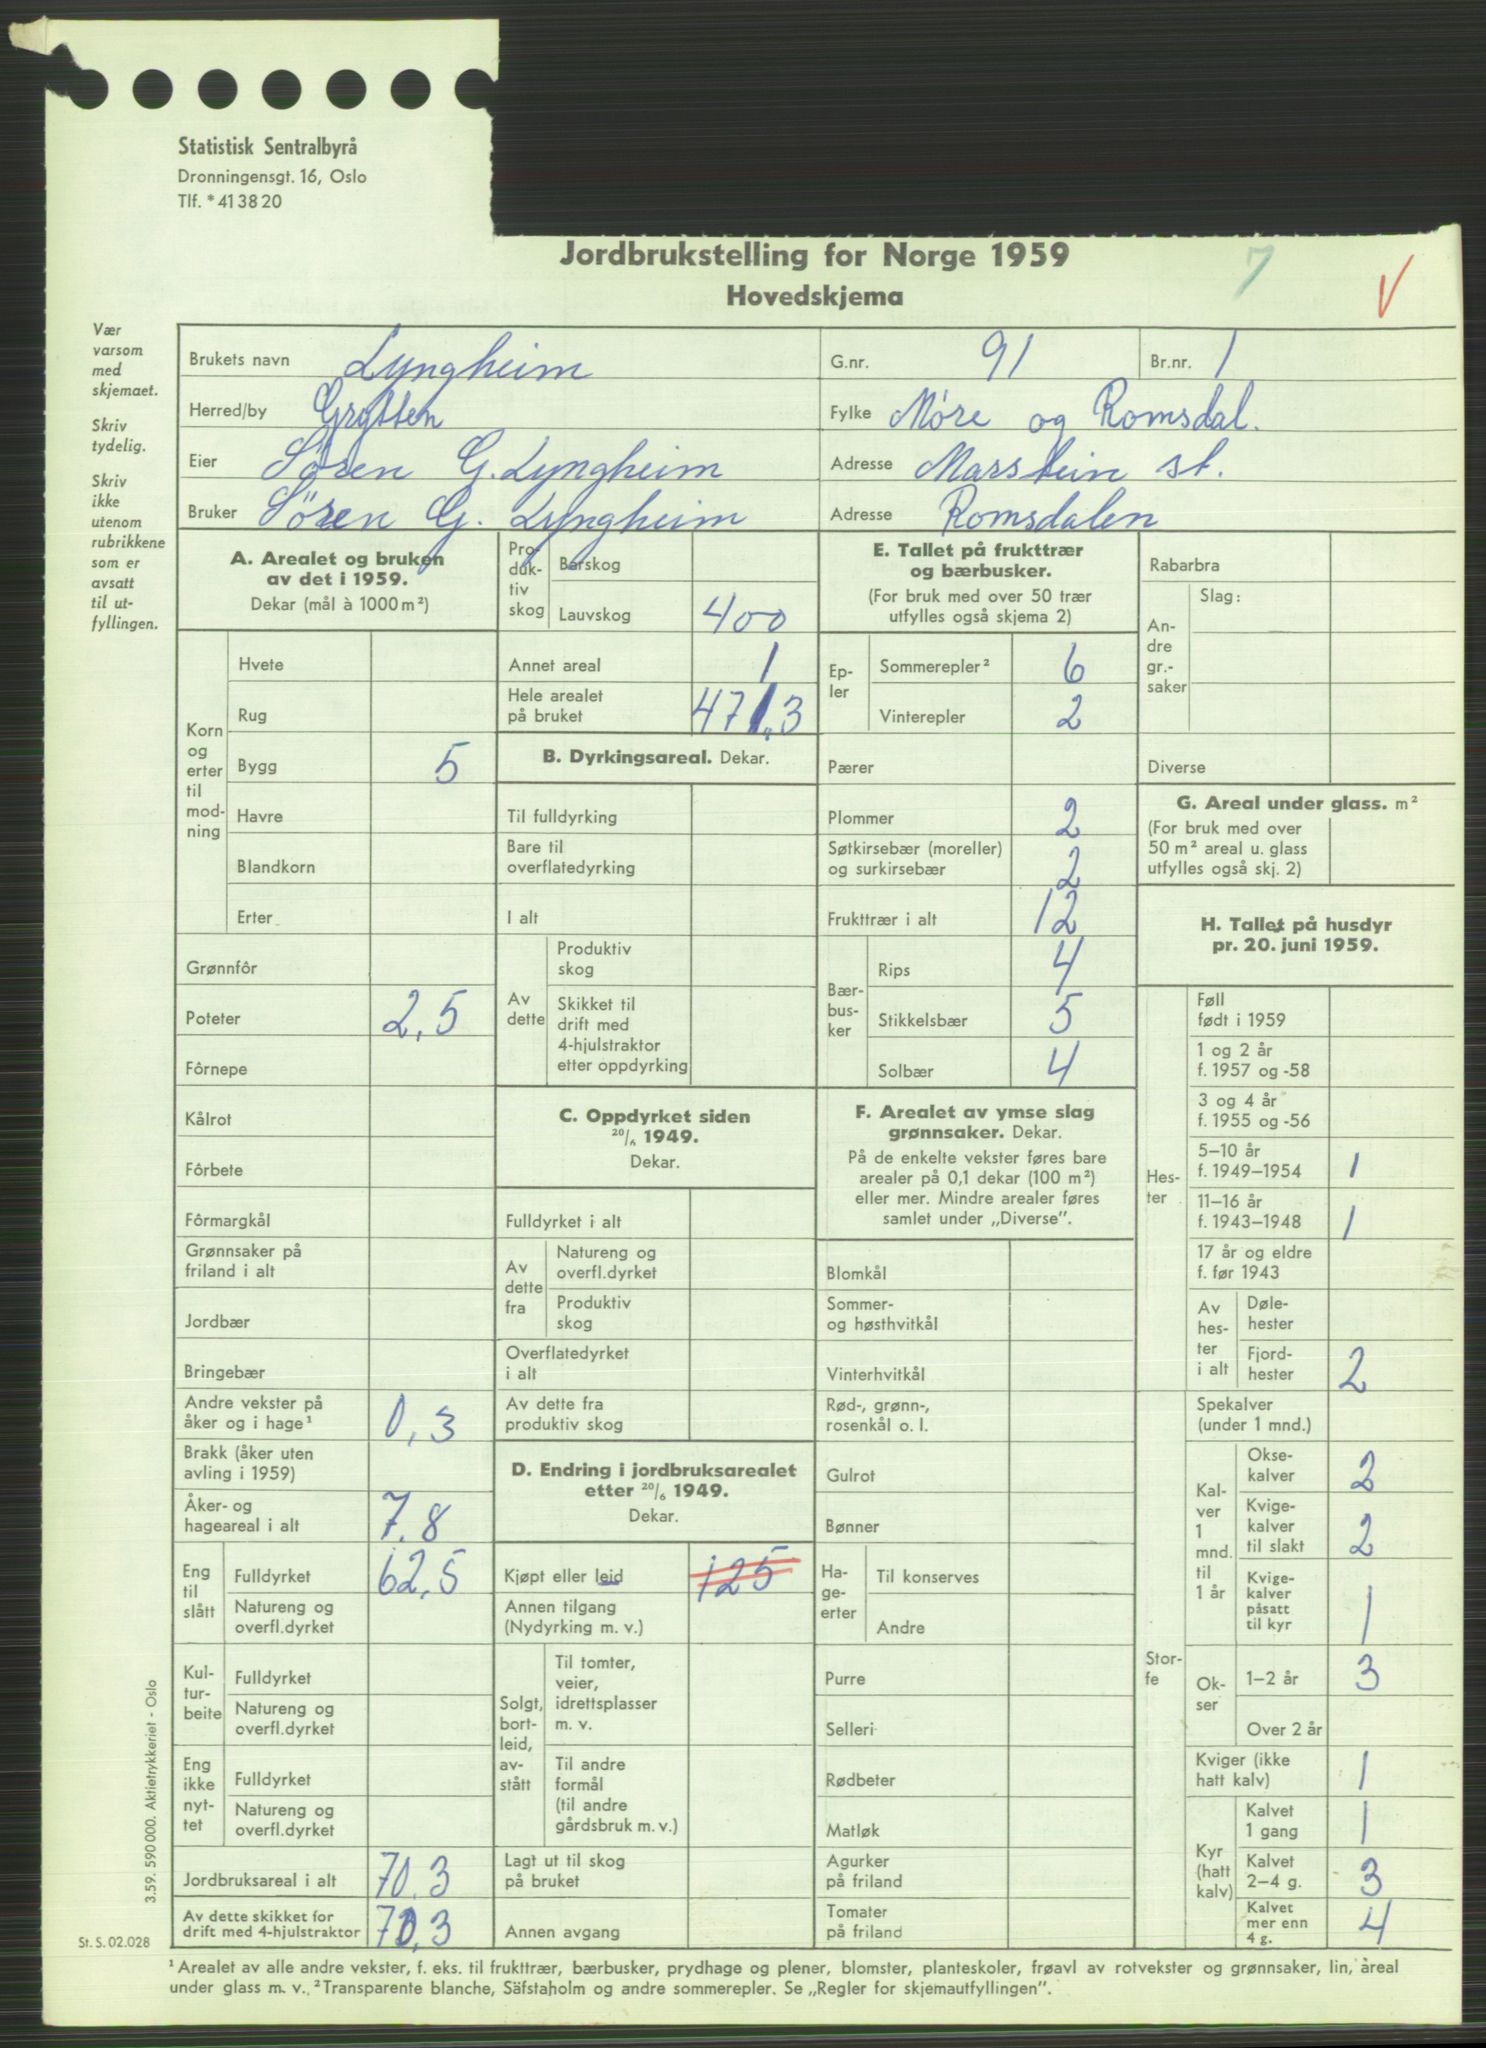 Statistisk Sentralbyrå
Dronningensgt. 16, Oslo
Tlf. * 41 38 20
Jordbrukstelling for Norge 1959
Hovedskjema
7
V
Vær
varsom
med
skjemaet.
Skriv
tydelig.
Skriv
ikke
utenom
rubrikkene
som er
avsatt
til ut-
fyllingen.
Brukets navn Lyngheim G.nr. 91 Br.nr. 1
Herred/by Grytten Fylke Møre og Romsdal.
Eier Søren G. Lyngheim Adresse Marstein st.
Bruker Sören G. Lyngheim Adresse Romsdalen
A. Arealet og bruken
av det i 1959.
Dekar (mål à 1000 m²)
Korn
og
erter
til
mod-
ning
Hvete
Rug
Bygg 5
Havre
Blandkorn
Erter
Grønnfôr
Poteter 2,5
Fôrnepe
Kålrot
Fôrbete
Fôrmargkål
Grønnsaker på
friland i alt
Jordbær
Bringebær
Andre vekster på
åker og i hage¹ 0,3
Brakk (åker uten
avling i 1959)
Åker- og
hageareal i alt 7.8
Eng
til
slått
Fulldyrket 62,5
Natureng og
overfl.dyrket
Kul-
tur-
beite
Fulldyrket
Natureng og
overfl.dyrket
Eng
ikke
nyt-
tet
Fulldyrket
Natureng og
overfl.dyrket
Jordbruksareal i alt 70.3
Av dette skikket for
drift med 4-hjulstraktor 70,3
Pro-
duk-
tiv
skog
Barskog
Lauvskog 400
Annet areal 1
Hele arealet
på bruket 471,3
B. Dyrkingsareal. Dekar.
Til fulldyrking
Bare til
overflatedyrking
I alt
Av
dette
Produktiv
skog
Skikket til
drift med
4-hjulstraktor
etter oppdyrking
C. Oppdyrket siden
20/6 1949.
Dekar.
Fulldyrket i alt
Av
dette
fra
Natureng og
overfl.dyrket
Produktiv
skog
Overflatedyrket
i alt
Av dette fra
produktiv skog
D. Endring i jordbruksarealet
etter 20/6 1949.
Dekar.
Kjøpt eller leid 125
Annen tilgang
(Nydyrking m. v.)
Solgt,
bort-
leid,
av-
stått
Til tomter,
veier,
idrettsplasser
m. v.
Til andre
formål
(til andre
gårdsbruk m. v.)
Lagt ut til skog
på bruket
Annen avgang
E. Tallet på frukttrær
og bærbusker.
(For bruk med over 50 trær
utfylles også skjema 2)
Ep-
ler
Sommerepler² 6
Vinterepler 2
Pærer
Plommer 2
Søtkirsebær (moreller)
og surkirsebær 2
Frukttrær i alt 12
Bær-
bus-
ker
Rips 4
Stikkelsbær 5
Solbær 4
F. Arealet av ymse slag
grønnsaker. Dekar.
På de enkelte vekster føres bare
arealer på 0,1 dekar (100 m²)
eller mer. Mindre arealer føres
samlet under „Diverse".
Blomkål
Sommer-
og høsthvitkål
Vinterhvitkål
Rød-, grønn-,
rosenkål o. l.
Gulrot
Bønner
Ha-
ge-
erter
Til konserves
Andre
Purre
Selleri
Rødbeter
Matløk
Agurker
på friland
Tomater
på friland
Rabarbra
An-
dre
gr.-
saker
Slag:
Diverse
G. Areal under glass. m²
(For bruk med over
50 m² areal u. glass
utfylles også skj. 2)
H. Tallet på husdyr
pr. 20. juni 1959.
Hes-
ter
Føll
født i 1959
1 og 2 år
f. 1957 og -58
3 og 4 år
f. 1955 og -56
5–10 år
f. 1949–1954 1
11–16 år
f. 1943–1948 1
17 år og eldre
f. før 1943
Av
hes-
ter
i alt
Døle-
hester
Fjord-
hester 2
Stor-
fe
Spekalver
(under 1 mnd.)
Kal-
ver
1
mnd.
til
1 år
Okse-
kalver 2
Kvige-
kalver
til slakt 2
Kvige-
kalver
påsatt
til kyr 1
Ok-
ser
1–2 år 3
Over 2 år
Kviger (ikke
hatt kalv) 1
Kyr
(hatt
kalv)
Kalvet
1 gang 1
Kalvet
2–4 g. 3
Kalvet
mer enn
4 g. 4
3.59. 590 000. Aktietrykkeriet - Oslo
St. S. 02.028
¹ Arealet av alle andre vekster, f. eks. til frukttrær, bærbusker, prydhage og plener, blomster, planteskoler, frøavl av rotvekster og grønnsaker, lin, areal
under glass m. v. ² Transparente blanche, Säfstaholm og andre sommerepler. Se „Regler for skjemautfyllingen".